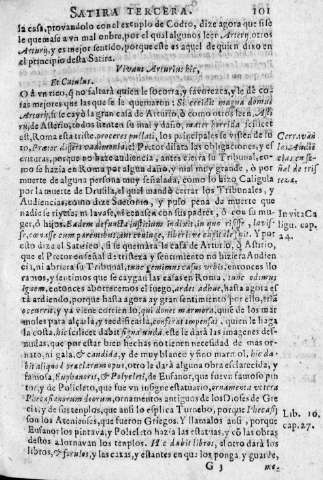 SATIRA TERCERA. 101
la casa, provandolo con el exemplo de Codro, dize agora que si se
le quemasse a vn mal onbre, por el qual algunos leen Arterij otros
Arturij, y es mejor sentido, porque este es aquel de quien dixo en
el principio desta Satira.
Vivant Arturius hic,
Et Catulus.
O a vn rico, q̃ no saltará quien le socorra, y favorezca, y le dè co
sas mejores que las que se le quemaron: Si cecidit magna domus
Arturij, si se cayó la gran casa de Arturio, ò como otros leen
de Asterio, todos sienten su mal y daño, mater horrida scilicet
est, Roma esta triste, proceres pullati, los principales se visten de lu
to, Pretor differt vadimonia, el Pretor dilata las obligaciones, y el
entonces, porque no haze audiencia, antes cierra su Tribunal, co-
mo se hazia en Roma por algun daño, y mal muy grande, ò por
muerte de alguna persona muy señalada, como lo hizo Caligula
por la muerte de Drusila, el qual mandò cerrar los Tribunales, y
Audiencias, como dize Suetonio, y puso pena de muerte que
nadie se riyesse, ni lavase, ni cenase con sus padres, ò con su mu-
ger, ò hijos. Eadem defuncta iustitium indixit in quo risisse, lavis-
se, coenasse cum parentibus, aut coniuge, liberisve capitale fuit. Y por
esto dize el Satirico, si se quemàra la casa de Arturio, ò Asturio,
que el Pretor en señal de tristeza y sentimiento no hiziera Audien
cia, ni abriera su Tribunal, tunc gemimus casus vrbis, entonces llo
ramos, y sentimos que se caygan las casas en Roma, tunc odimus
ignem, entonces aborrecemos el fuego, ardet adhuc, hasta agora es
tà ardiendo, porque hasta agora ay gran sentimiento por ello, etia
occurrit, y ya viene corriendo lo, qui donet marmora, quie de los mar
moles para alçarla, y reedificarla, conferat impensas, quien le haga
la costa, hic scilicet dabit signa nuda, este le darà las imagenes des-
nudas, que por estar bien hechas no tienen necesidad de mas or-
nato, ni gala, & candida, y de muy blanco y fino marmol, hic da-
bit aliquod praeclarum opus, otro le darà alguna obra esclarecida, y
famosa, Euphranoris, & Polycleti, de Eufranor, que fue vn famoso pin
tor, y de Policleto, que fue vn insigne estatuario, ornamenta vetera
Phaecasianorum deorum, ornamentos antiguos de los Dioses de Gre
cia, y de sus templos, que ansi lo esplica Turnebo, porque Phaecasij
son los Atenienses, que fueron Griegos. Y llamalos ansi, porque
Eufanor los pintava, y Policleto hazia las estatuas, y con las obras
destos adornavan los templos. Hic dabit libros, el otro dará los
libros, & forulos, y las caxas, y estantes en que los ponga, y guarde,
G 3 me-
Cerravan
los Audié
cias en se
ñal de tris
teza.
InvitaCa
ligu. cap.
24.
Lib. 10.
cap. 27.